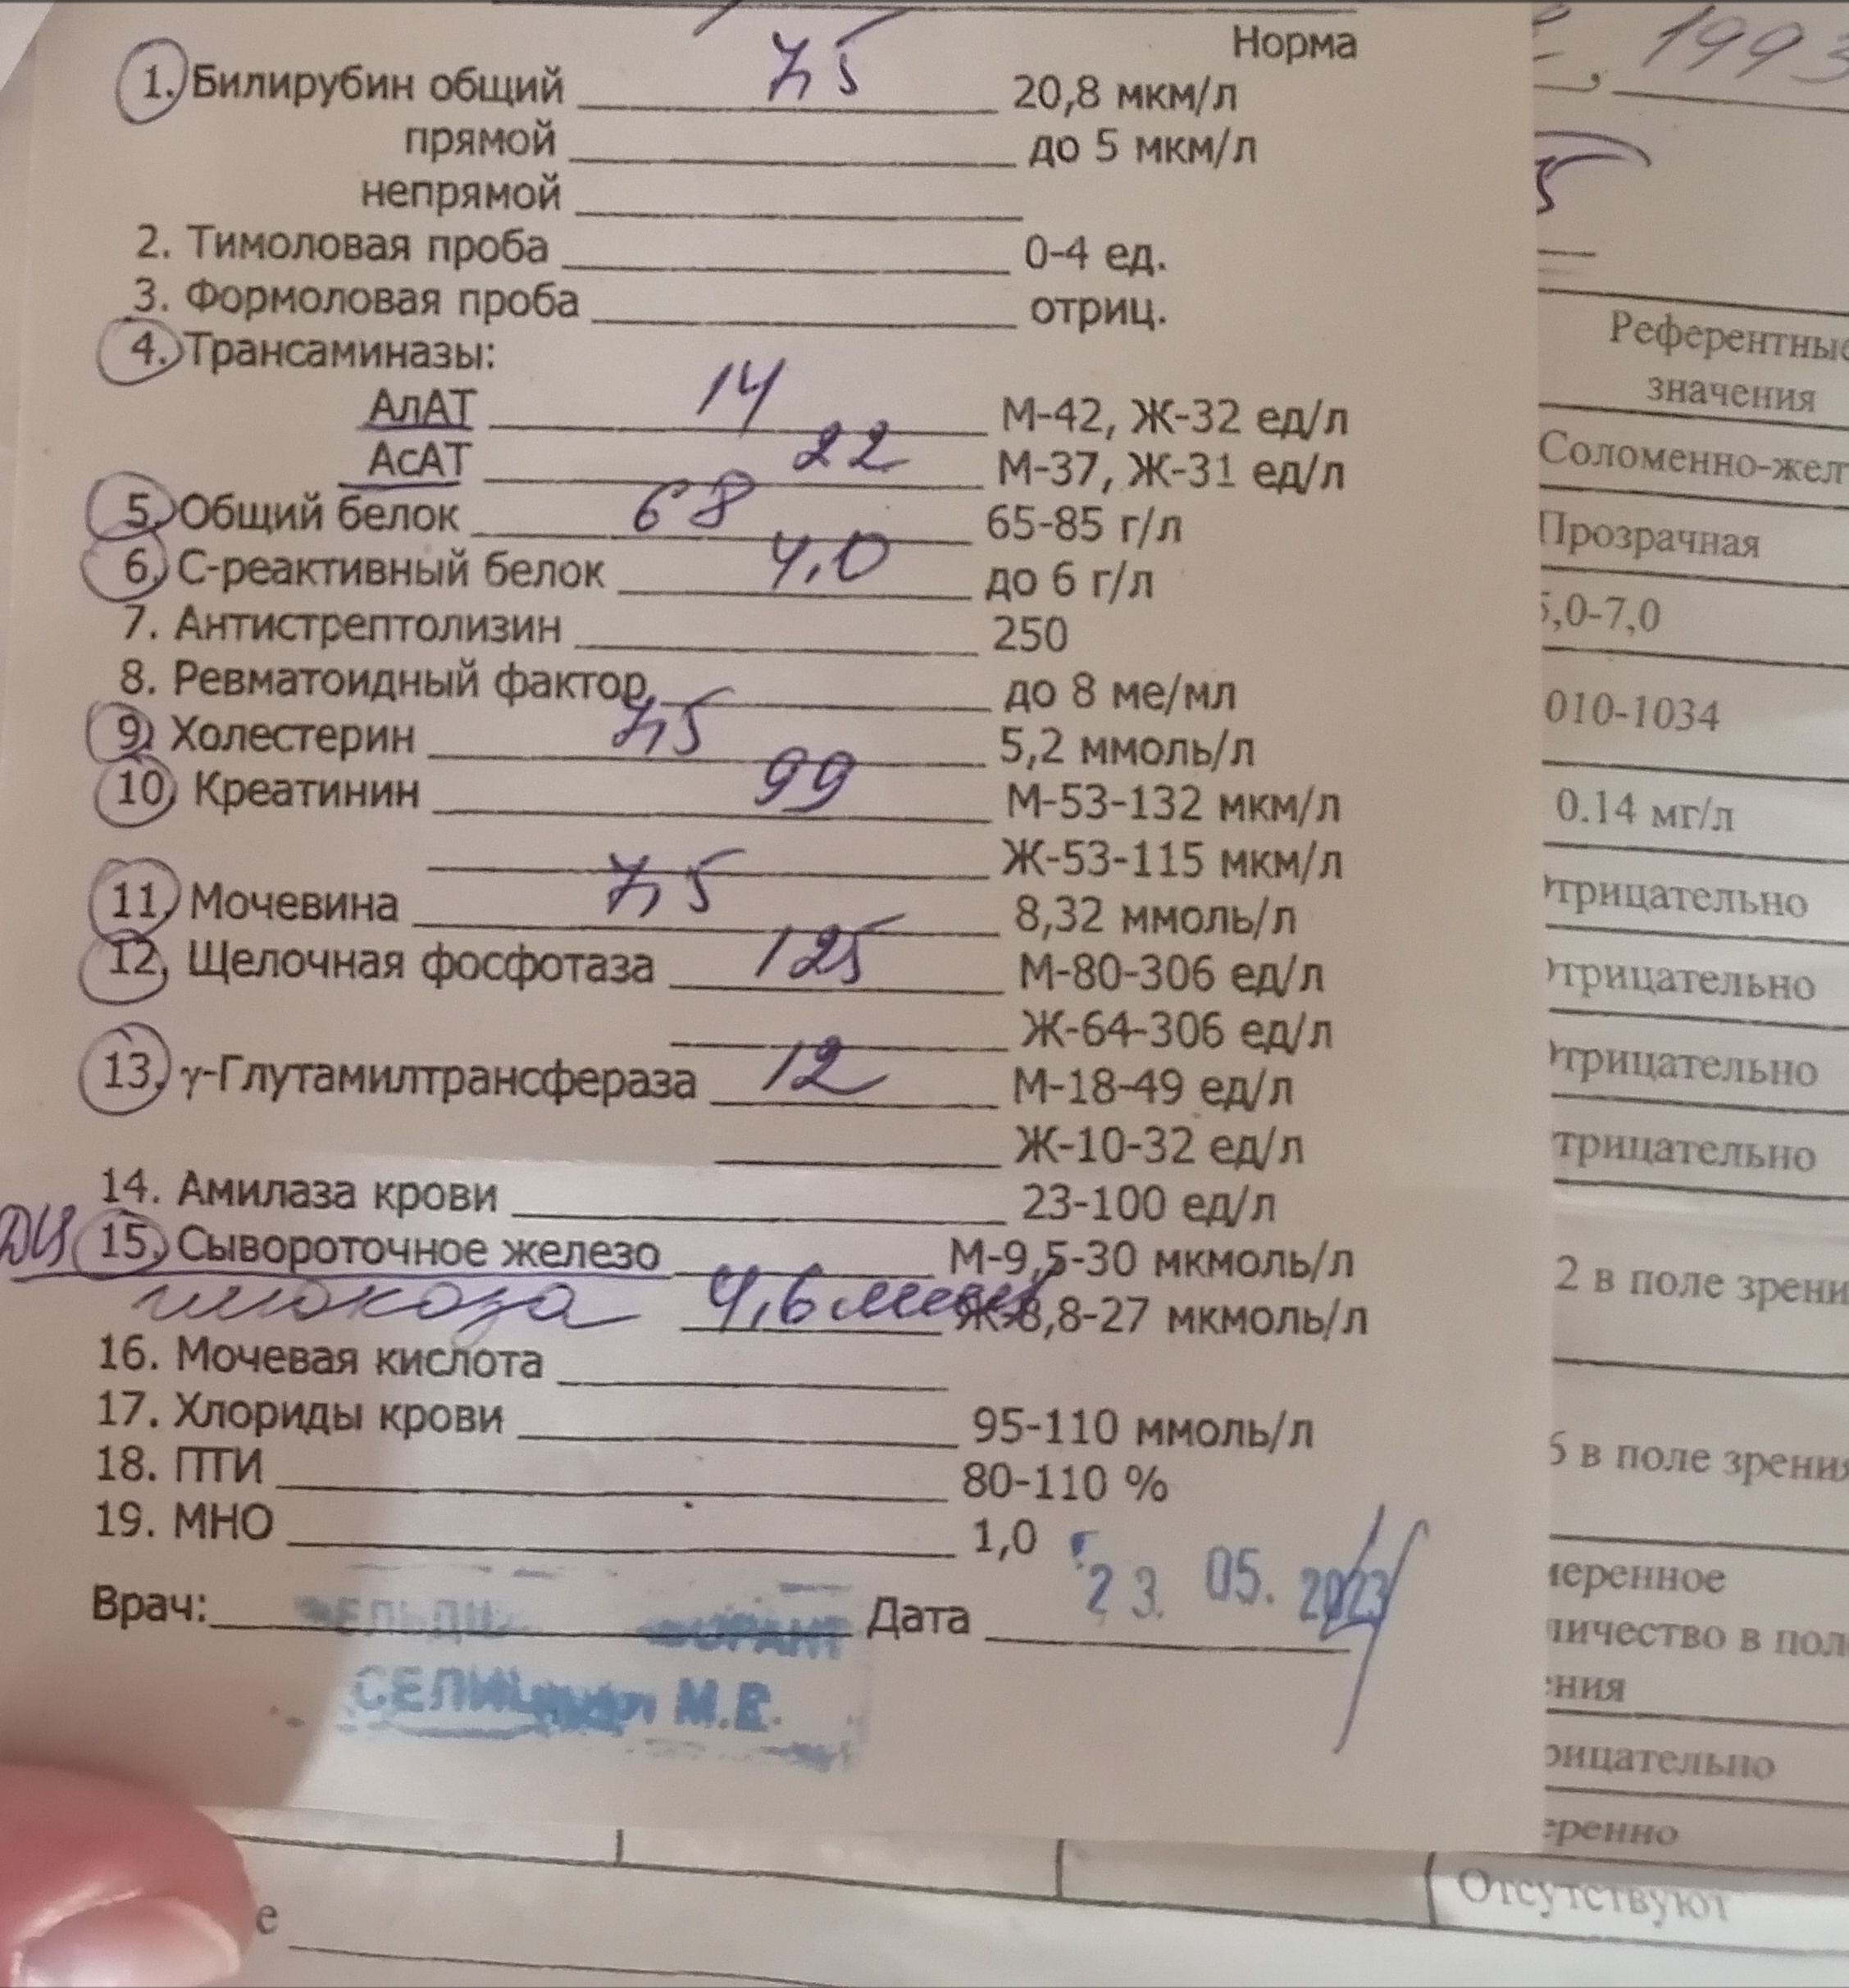 Норма
1. Билирубин общий 7,5 20,8 мкм/л
прямой до 5 мкм/л
непрямой
2. Тимоловая проба 0-4 ед.
3. Формоловая проба отриц.
4. Трансаминазы:
АлАТ 14 М-42, Ж-32 ед/л
АсАТ 22 М-37, Ж-31 ед/л
5. Общий белок 68 65-85 г/л
6. С-реактивный белок 4,0 до 6 г/л
7. Антистрептолизин 250
8. Ревматоидный фактор до 8 ме/мл
9. Холестерин 7,5 5,2 ммоль/л
10. Креатинин 99 М-53-132 мкм/л
Ж-53-115 мкм/л
11. Мочевина 7,5 8,32 ммоль/л
12. Щелочная фосфотаза 125 М-80-306 ед/л
Ж-64-306 ед/л
13. γ-Глутамилтрансфераза 12 М-18-49 ед/л
Ж-10-32 ед/л
14. Амилаза крови 23-100 ед/л
15. Сывороточное железо М-9,5-30 мкмоль/л
глюкоза 4,6 Ж-8,8-27 мкмоль/л
16. Мочевая кислота
17. Хлориды крови 95-110 ммоль/л
18. ПТИ 80-110 %
19. МНО 1,0
Врач: Дата 23. 05. 2023
М.В.
1993
Референтные
значения
Соломенно-жел
Прозрачная
5,0-7,0
010-1034
0.14 мг/л
трицательно
трицательно
трицательно
трицательно
2 в поле зрени
5 в поле зрения
меренное
личество в пол
ения
рицательно
еренно
Отсутствуют
е